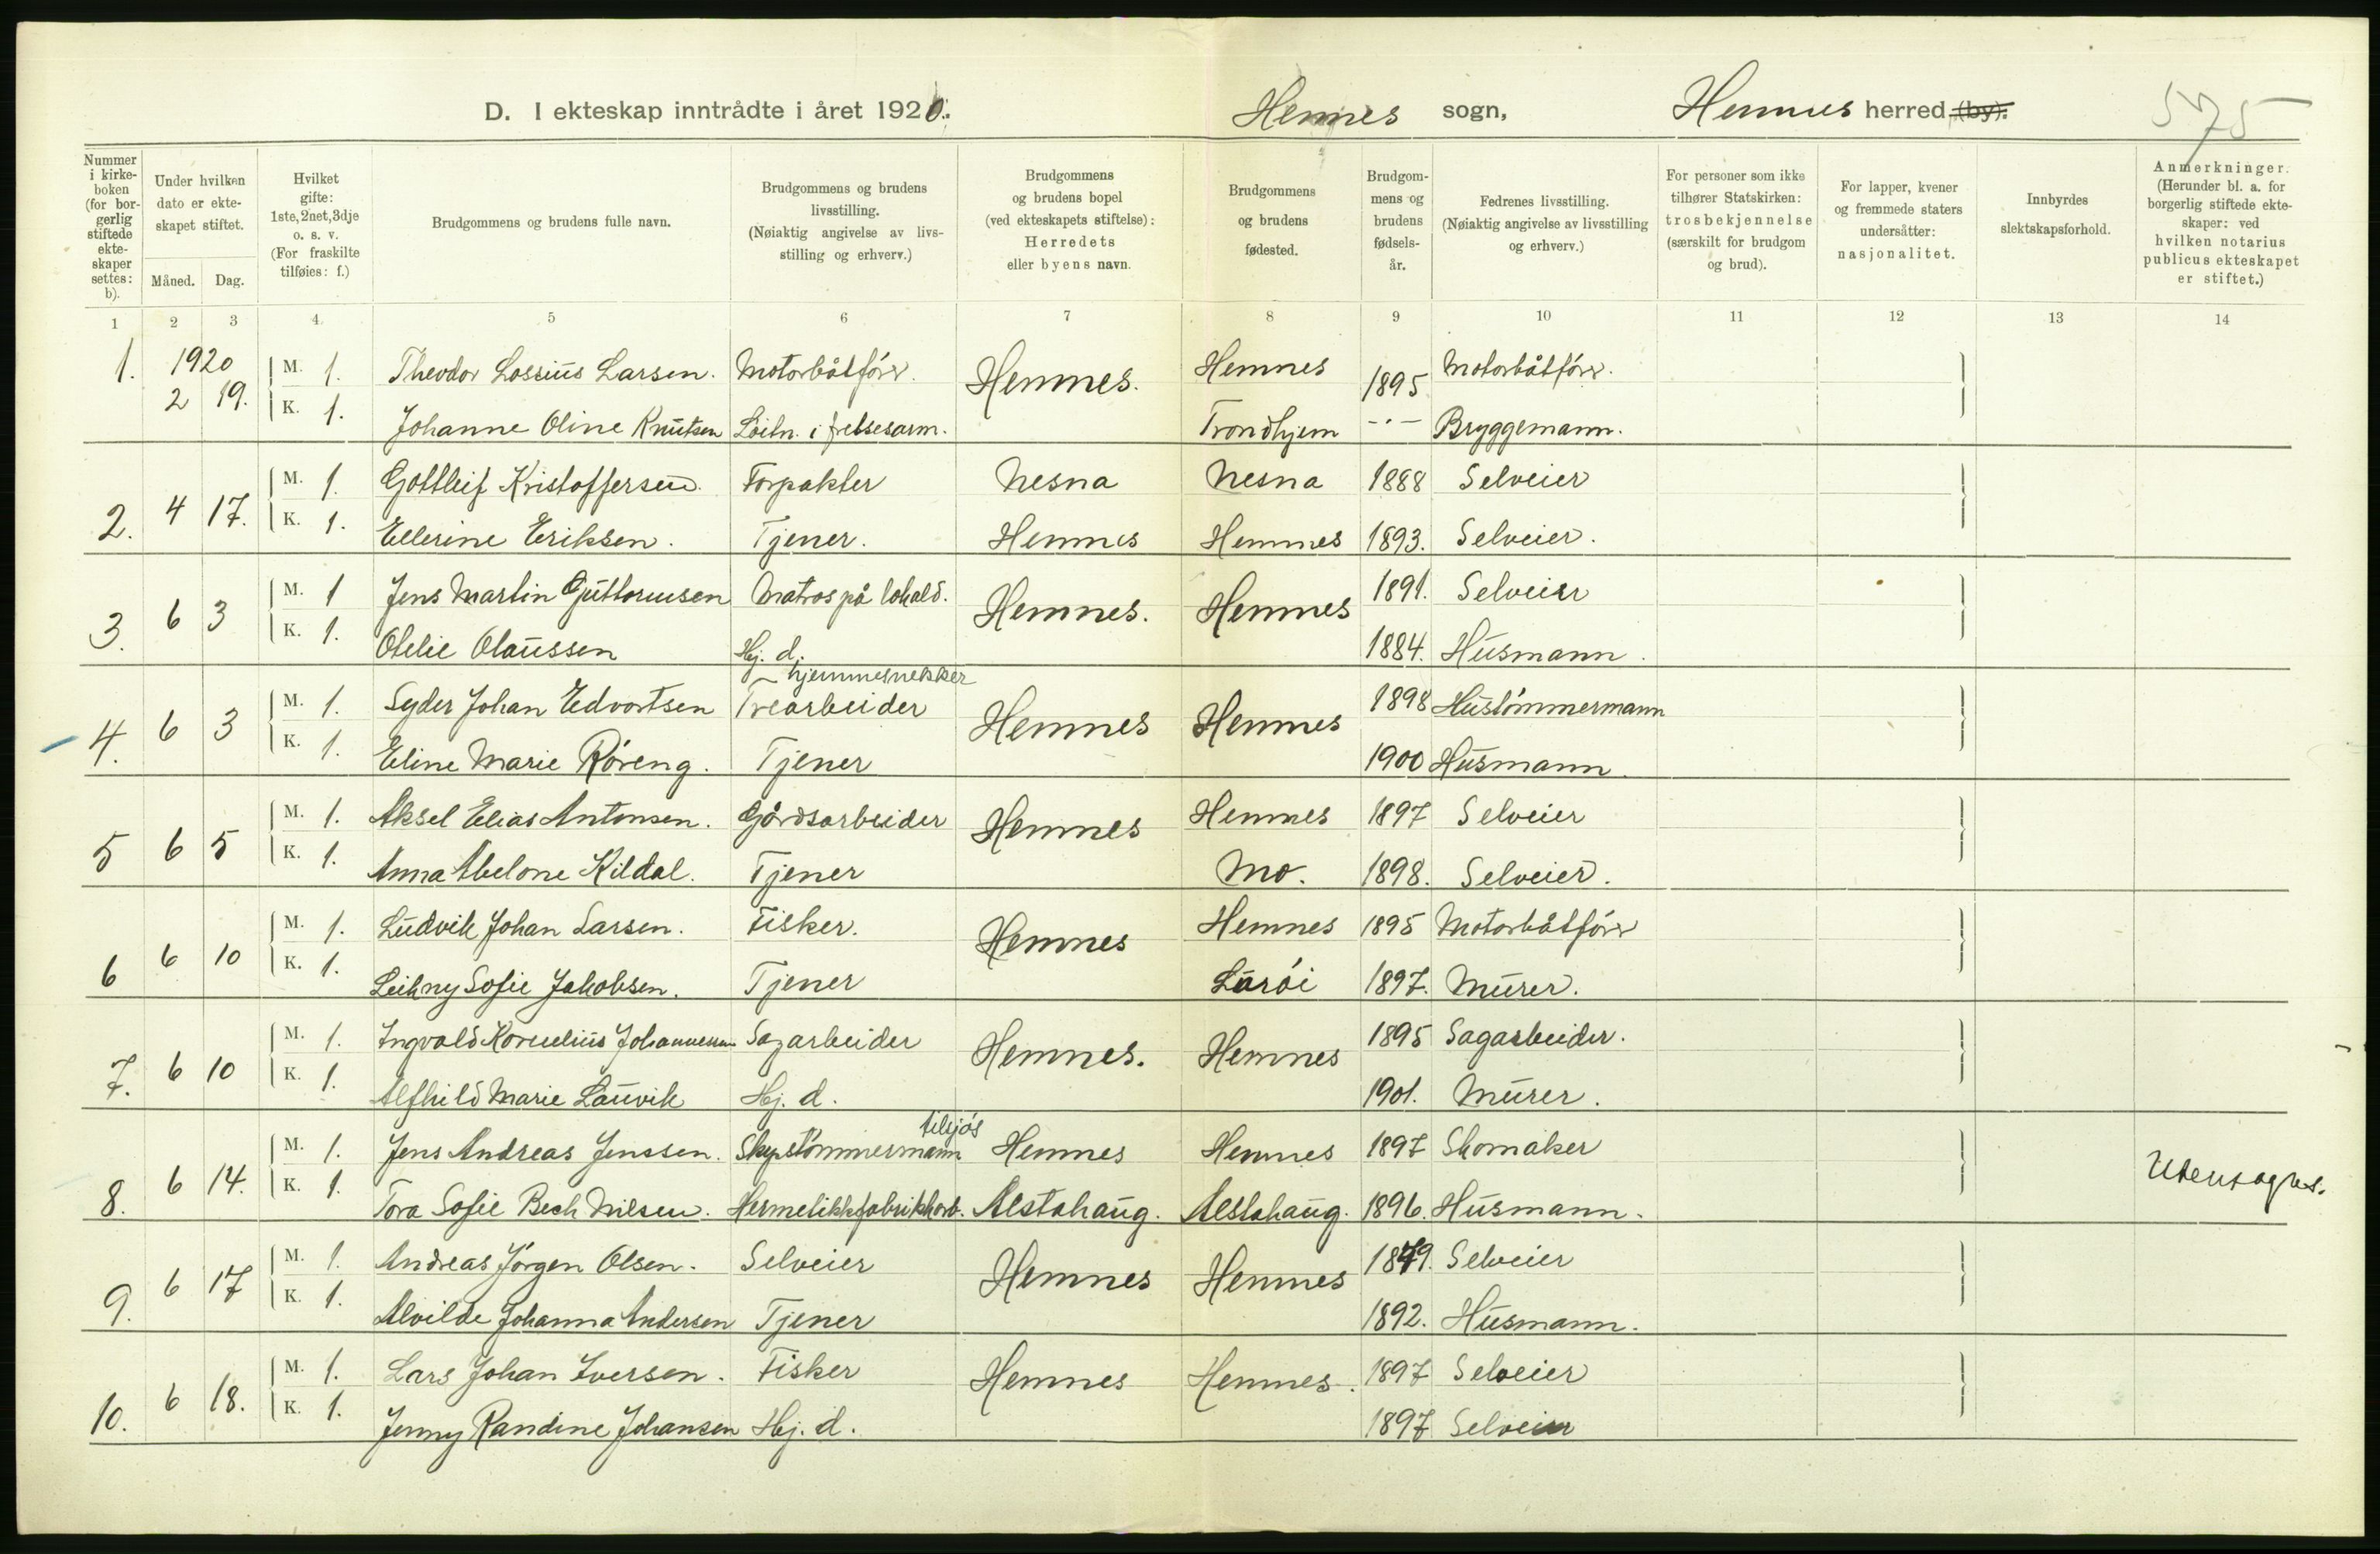 D. I ekteskap inntrådte i året 1920. Hemnes sogn, Hemnes herred (by). 575
Nummer i kirkeboken (for borgerlig stiftede ekteskaper settes: b).
Under hvilken dato er ekteskapet stiftet. Måned. Dag.
Hvilket gifte: 1ste, 2net, 3dje o. s. v. (For fraskilte tilføies: f.)
Brudgommens og brudens fulle navn.
Brudgommens og brudens livsstilling. (Nøiaktig angivelse av livsstilling og erhverv.)
Brudgommens og brudens bopel (ved ekteskapets stiftelse): Herredets eller byens navn.
Brudgommens og brudens fødested.
Brudgommens og brudens fødselsår.
Fedrenes livsstilling. (Nøiaktig angivelse av livsstilling og erhverv.)
For personer som ikke tilhører Statskirken: trosbekjennelse (særskilt for brudgom og brud).
For lapper, kvener og fremmede staters undersåtter: nasjonalitet.
Innbyrdes slektskapsforhold.
Anmerkninger. (Herunder bl. a. for borgerlig stiftede ekteskaper: ved hvilken notarius publicus ekteskapet er stiftet.)
1 2 3 4. 5 6 7 8 9 10 11 12 13 14
1. 1920 M. 1. Theodor Lossius Larsen. Motorbåtfører. Hemnes. Hemnes 1895 Motorbåtfører.
2 19. K. 1. Johanne Oline Knutsen Löitn. i frelsesarm. Trondhjem -"- Bryggemann.
2. 4 17. M. 1. Gottleif Kristoffersen. Forpakter Nesna Nesna 1888 Selveier
K. 1. Ellerine Eriksen. Tjener. Hemnes Hemnes 1893. Selveier.
3. 6 3 M. 1 Jens Martin Guttormsen Matros på lokald. Hemnes. Hemnes 1891. Selveier
K. 1. Otelie Olaussen Hj. d. 1884. Husmann.
hjemmesnekker
4. 6 3 M. 1. Syder Johan Edvartsen Trearbeider Hemnes Hemnes 1898 Hustømmermann
K. 1. Eline Marie Röreng. Tjener 1900 Husmann.
5 6 5 M. 1. Aksel Elias Antonsen. Gårdsarbeider Hemnes Hemnes 1897 Selveier
K. 1. Anna Abelone Kildal. Tjener Mo. 1898. Selveier.
6 6 10 M. 1. Ludvik Johan Larsen. Fisker. Hemnes Hemnes 1895 Motorbåtfører
K. 1. Leikny Sofie Jakobsen. Tjener Luröi 1897. Murer.
7. 6 10 M. 1. Ingvald Kornelius Johannessen Sagarbeider Hemnes. Hemnes 1895 Sagarbeider.
K. 1. Alfhild Marie Lauvik Hj. d. 1901. Murer.
tilsjös
8. 6 14. M. 1. Jens Andreas Jenssen. Skipstömmermann Hemnes Hemnes 1897 Skomaker
K. 1. Tora Sofie Bech Nilsen. Hermetikkfabrikkarb. Alstahaug. Alstahaug. 1896. Husmann. Utensogns.
9. 6 17 M. 1. Andreas Jörgen Olsen. Selveier Hemnes Hemnes 1879. Selveier
K. 1. Alvilde Johanna Andersen Tjener 1892. Husmann.
10. 6 18. M. 1. Lars Johan Iversen. Fisker Hemnes Hemnes. 1897 Selveier
K. 1. Jenny Randine Johansen Hj. d. 1897 Selveier